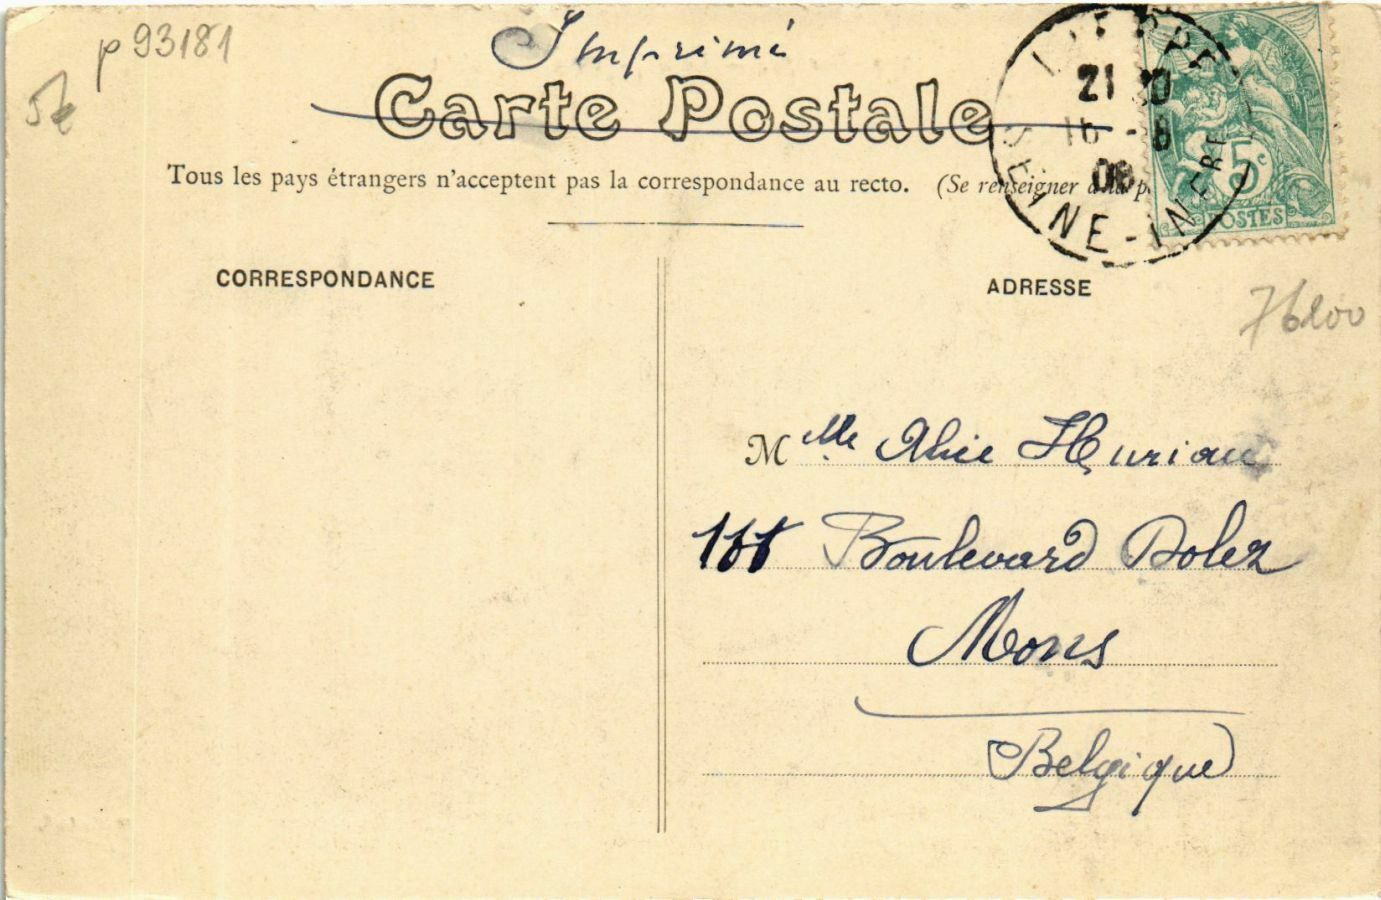 p 93181
Imprimé
Carte Postale
Tous les pays étrangers n'acceptent pas la correspondance au recto. (Se renseigner à la p
DIEPPE
21 20
16 - 8
08
SEINE-INFRE
5c
POSTES
CORRESPONDANCE
ADRESSE
76200
Mlle Alice Huriau
Boulevard Dolez
Mons
Belgique